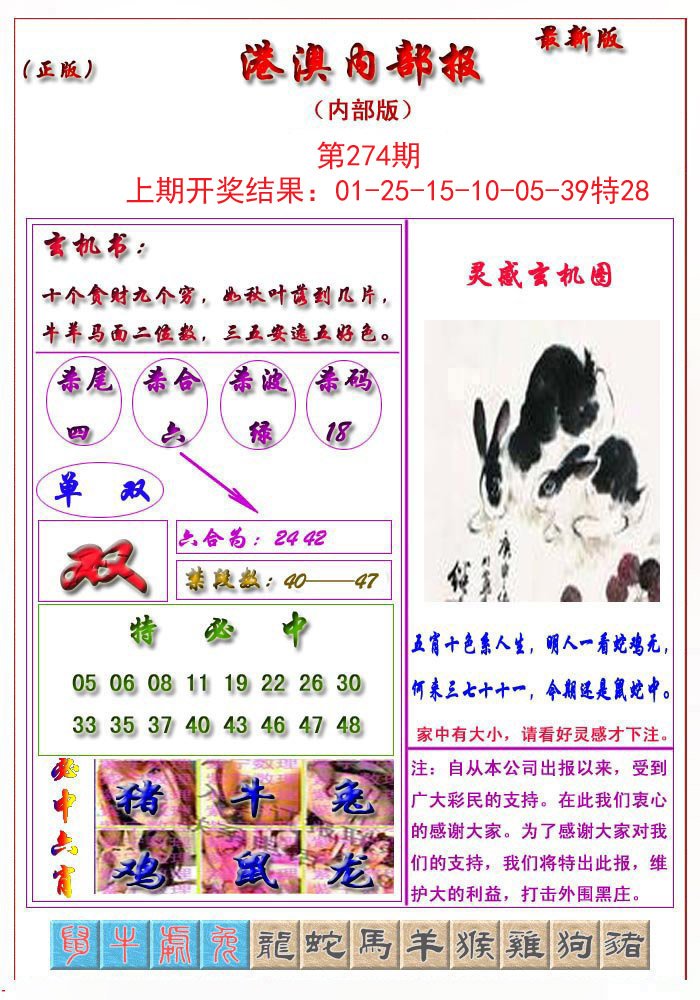 （正版）
港澳内部报
最新版
（内部版）
第274期
上期开奖结果：01-25-15-10-05-39特28
玄机书：
十个贪财九个穷，如秋叶落到几片，
牛羊马面二位数，三五安逸五好色。
杀尾 杀合 杀波 杀码
四 六 绿 18
单 双
双
六合为：24 42
禁段数：40——47
特 必 中
05 06 08 11 19 22 26 30
33 35 37 40 43 46 47 48
必中六肖
猪 牛 兔
鸡 鼠 龙
灵感玄机图
五肖十色系人生，明人一看蛇鸡无，
何来三七十十一，今期还是鼠蛇中。
家中有大小，请看好灵感才下注。
注：自从本公司出报以来，受到
广大彩民的支持。在此我们衷心
的感谢大家。为了感谢大家对我
们的支持，我们将特出此报，维
护大的利益，打击外围黑庄。
鼠 牛 虎 兔 龍 蛇 馬 羊 猴 雞 狗 豬